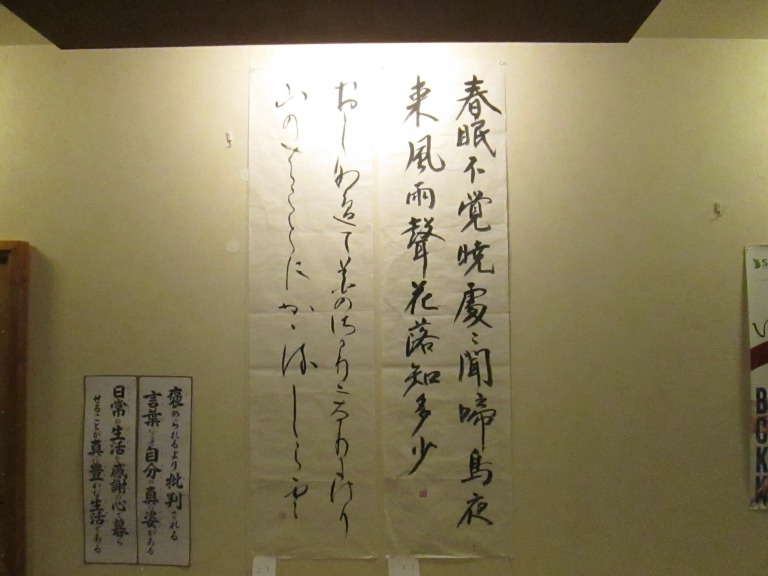 春眠不覚暁處〻聞啼鳥夜
来風雨聲花落知多少
おしなへて花のさかりになりにけり
山のはことにかゝるしら雲
褒められるより批判される
言葉にこそ自分の真の姿がある
日常の生活を感謝の心で暮ら
せることが真に豊かな生活である